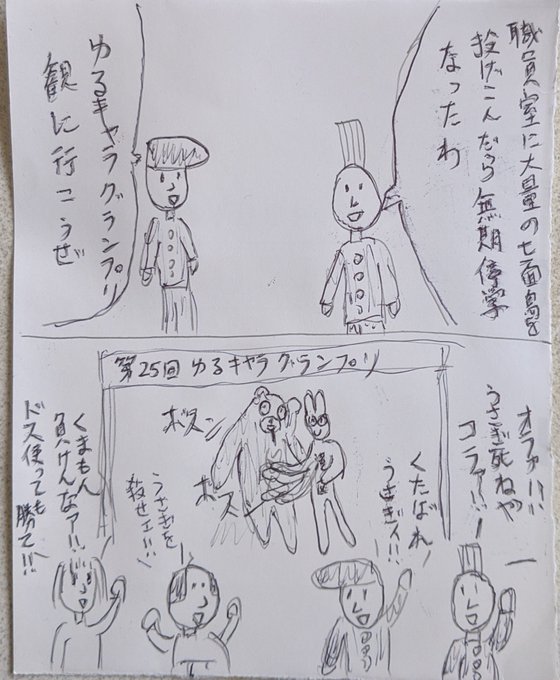 職員室に大量の七面鳥を
投げこんだら無期停学
なったわ
ゆるキャラグランプリ
観に行こうぜ
第25回 ゆるキャラグランプリ
オラァ!!
うさぎ死ねや
コラァー!!
くたばれ
うさぎィ!!
ボスッ
ボスッ
うさぎを
殺せェ!!
くまもん
負けんなァ!!
ドス使っても
勝て!!